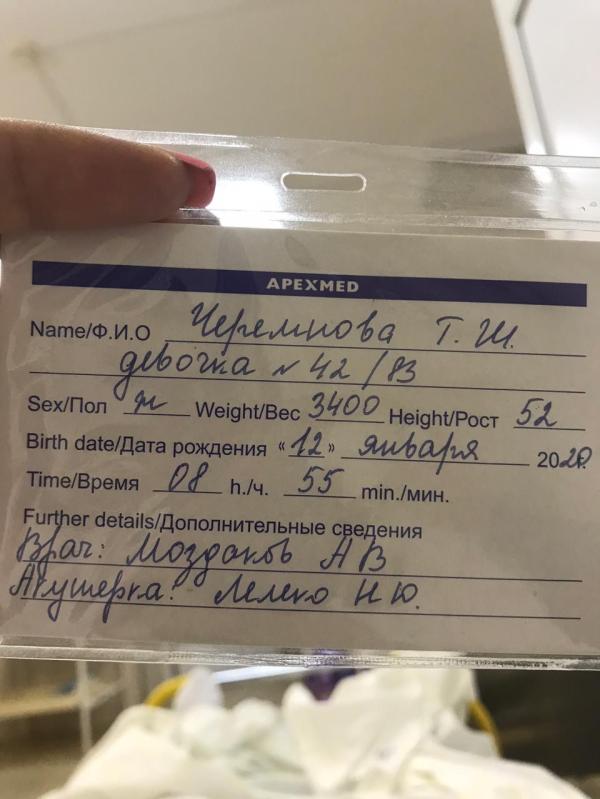 APEXMED
Name/Ф.И.О Черемнова Т. Ш.
девочка № 42/83
Sex/Пол ж Weight/Вес 3400 Height/Рост 52
Birth date/Дата рождения «12» января 2020г.
Time/Время 08 h./ч. 55 min./мин.
Further details/Дополнительные сведения
Врач: Моздаков А В
Акушерка: Лелеко Н Ю.